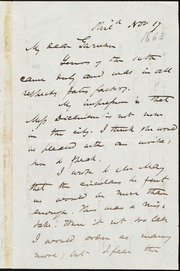 Phil^a Nov 17
1863
My dear Garrison
Yours of the 14th
came duly and was in all
respects satisfactory.
My impression is that
Miss Dickinson is not now
in the city. I think she would
be pleased with an invita-
tion to speak.
I wrote to Mr May
that the circulars he sent
us would be more than
enough. This was a mis-
take. Then it not too late
I would order as many
more; but I fear the